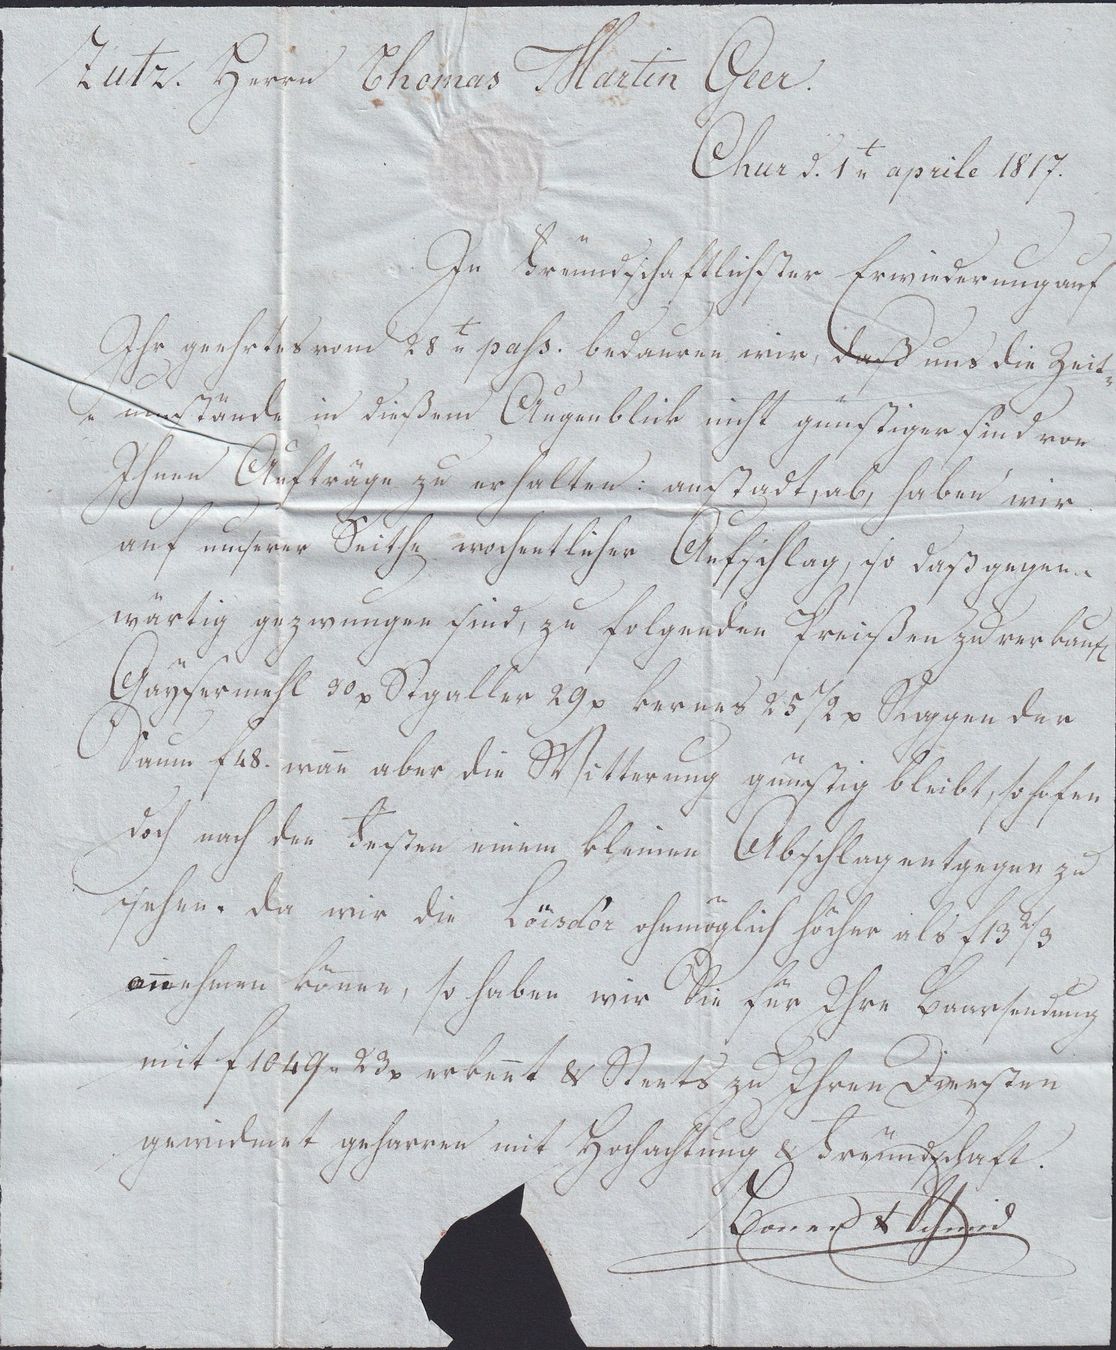 Zutz. Herrn Thomas Martin Geer.
Chur d. 1t n aprile 1817.
In Freündschaftlichster Erwiederung auf
Ihr geehrtes vom 28t n pass. bedauren wir, daß uns die Zeit-
umstände in dießem Augenblick nicht günstiger sind von
Ihnen Aufträge zu erhalten: anstadt, ab, haben wir
auf unserer Seithe wochentlicher Aufschlag, so daß gegen-
wärtig gezwungen sind, zu folgenden Preißen zu verkauf
30 Stgaller 29 kernes 25 1/2 Roggen der
Saum f 48. wan̄ aber die Witterung günstig bleibt, so hofen
doch nach den Festen einem kleinen Abschlag entgegen zu
sehen. da wir die Loisdor ohnmöglich höcher als f 13 2/3
an̄nehmen kön̄en, so haben wir Sie für Ihre Baarsendung
mit f 1049 23 erken̄t & Steets zu Ihren Diensten
gewidmet geharren mit Hochachtung & Freündschaft.
& Schmid